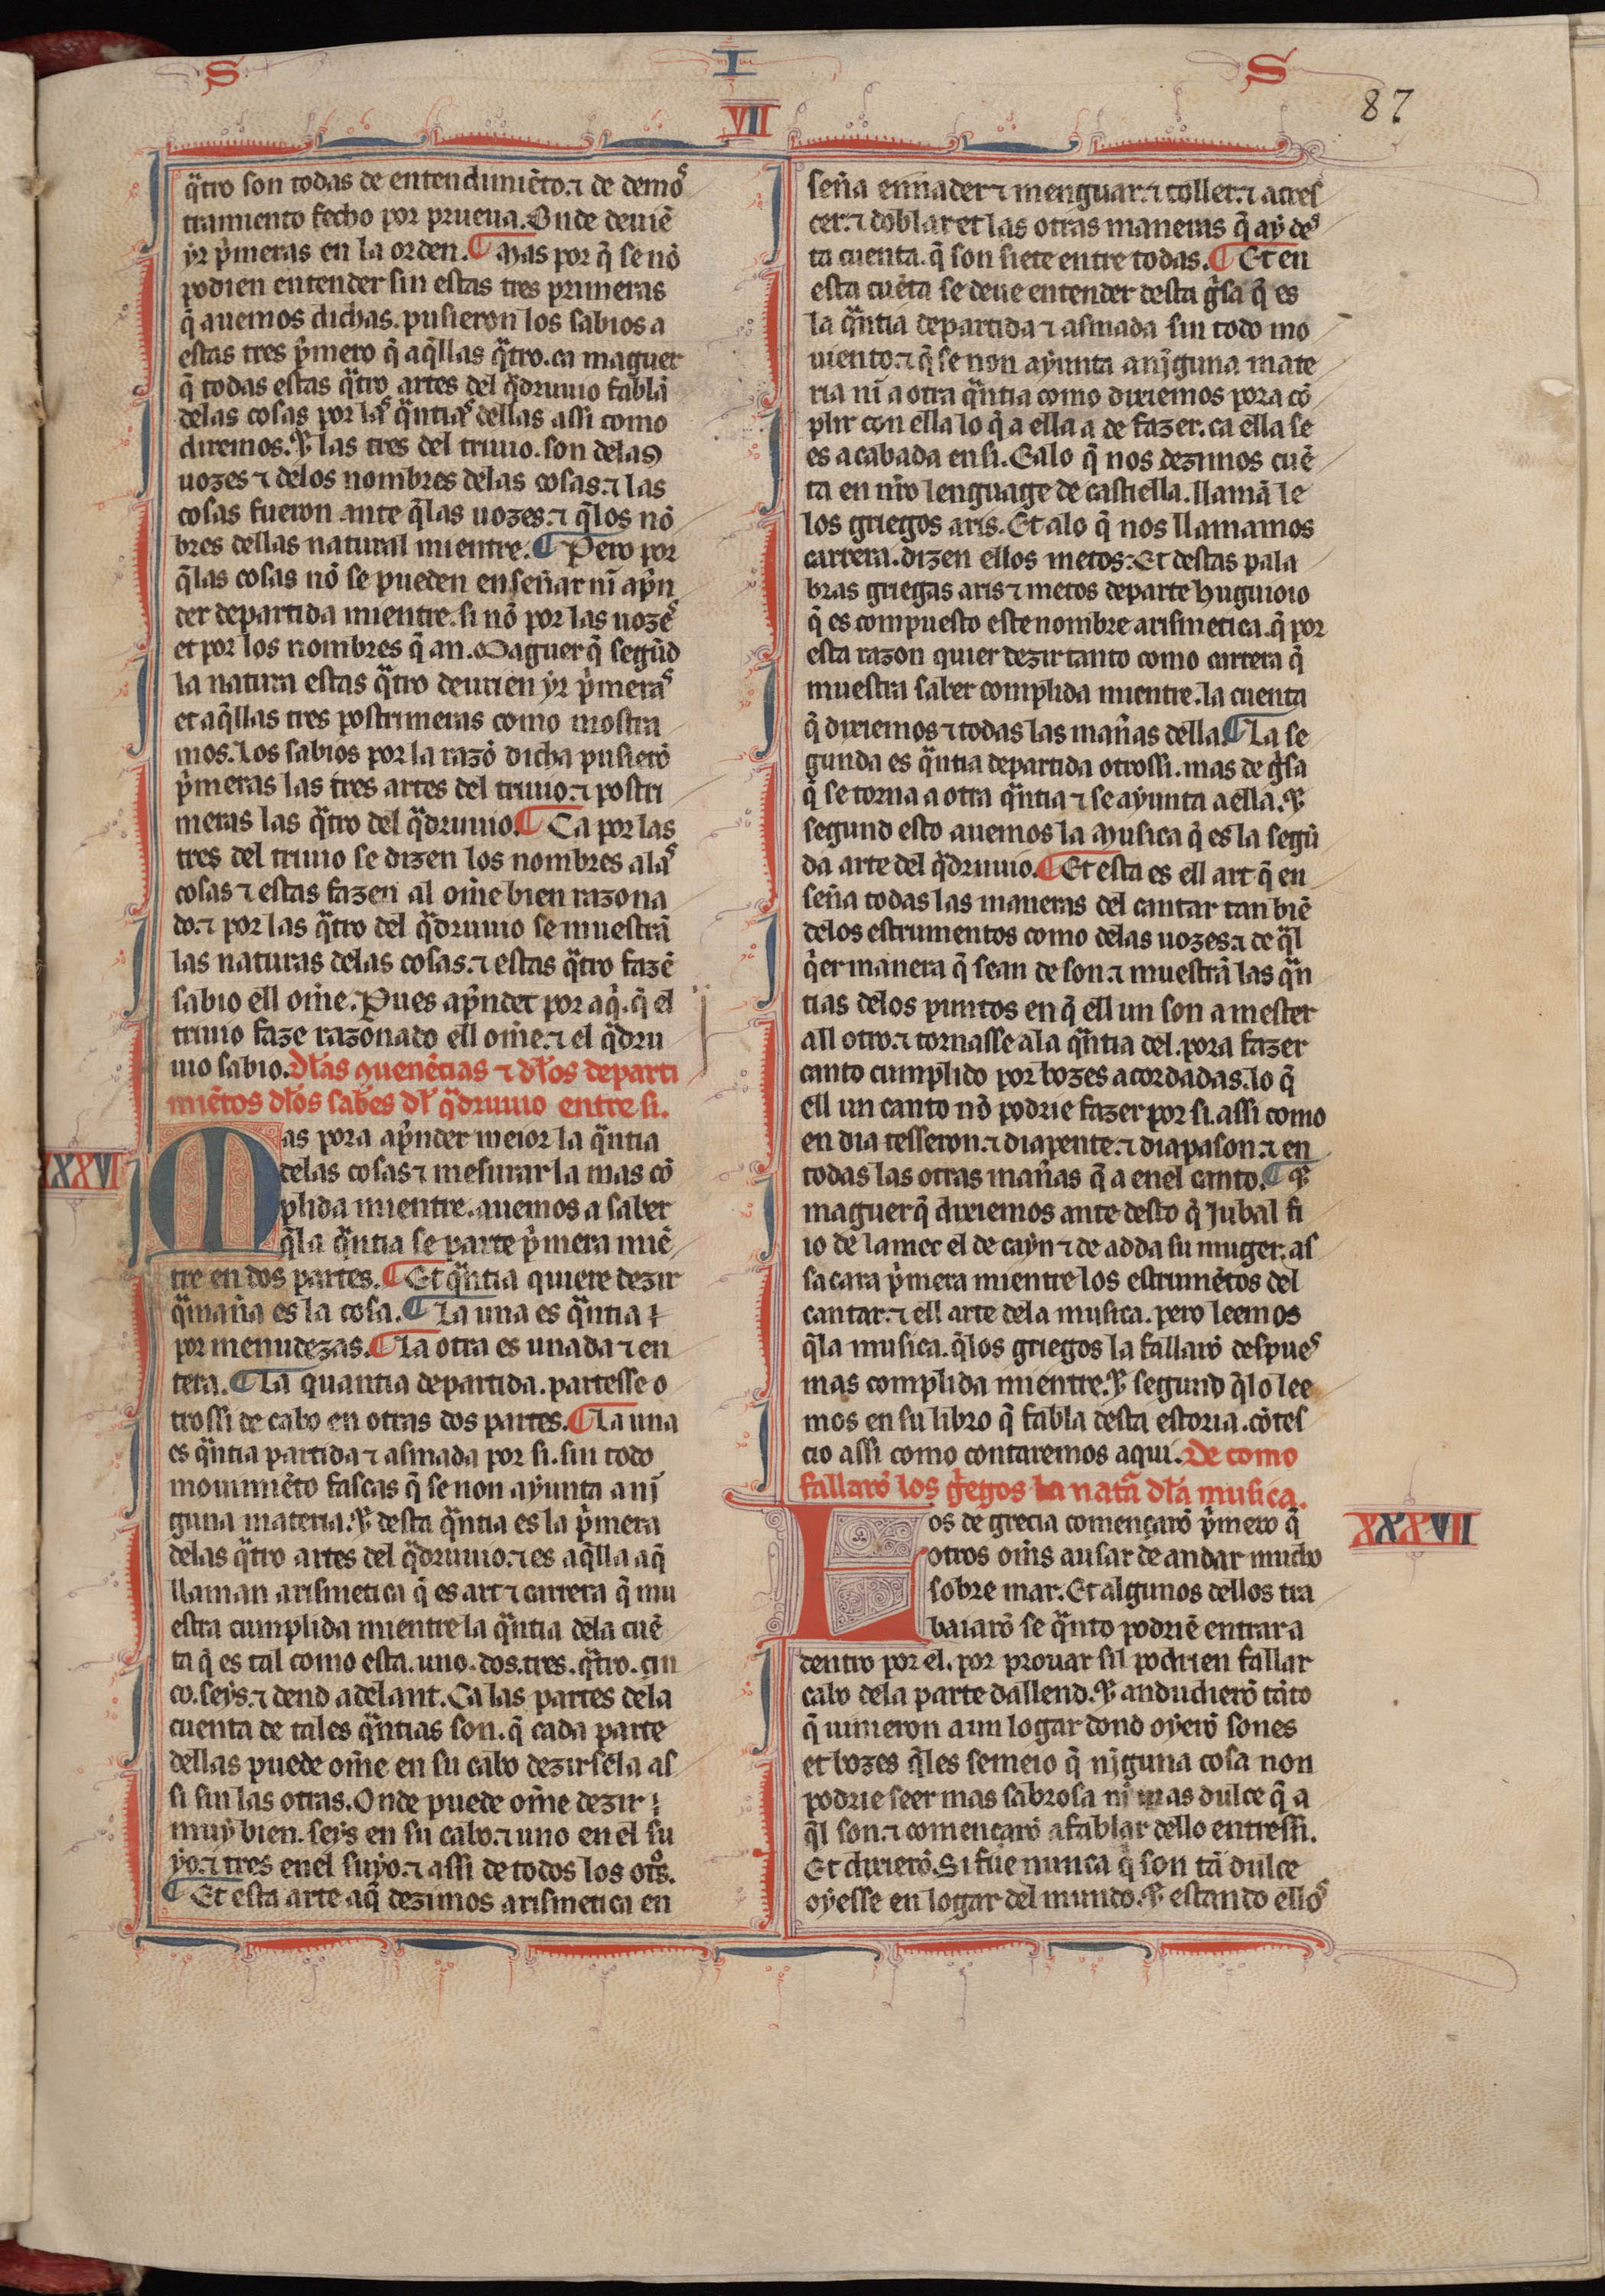 S I S
VII
87
q̃tro son todas de entendimiẽto. ⁊ de demos
tramiento fecho por prueua. Onde deuiẽ
yr p̃meras en la orden. ¶ Mas por q̃ se nõ
podien entender sin estas tres primeras
q̃ auemos dichas. pusieron los sabios a
estas tres p̃mero q̃ aq̃llas q̃tro. ca maguer
q̃ todas estas q̃tro artes del q̃driuuio fablã
delas cosas por las q̃ntias dellas assi como
diremos. ⁊ las tres del triuio. son delas
uozes ⁊ delos nombres delas cosas. ⁊ las
cosas fueron ante q̃las uozes. ⁊ q̃los nõ
bres dellas natural mientre. ¶ Pero por
q̃las cosas nõ se pueden enseñar nĩ ap̃n
der departida mientre. si nõ por las uozes
et por los nombres q̃ an. Maguer q̃ segũd
la natura estas q̃tro deurien yr p̃meras
et aq̃llas tres postrimeras como mostra
mos. Los sabios por la razõ dicha pusierõ
p̃meras las tres artes del triuio. ⁊ postri
meras las q̃tro del q̃driuuio. ¶ Ca por las
tres del triuio se dizen los nombres alas
cosas ⁊ estas fazen al om̃e bien razona
do. ⁊ por las q̃tro del q̃driuuio se muestrã
las naturas delas cosas. ⁊ estas q̃tro fazẽ
sabio ell om̃e. Pues ap̃ndet por aq̃. q̃ el
triuio faze razonado ell om̃e. ⁊ el q̃driu
uio sabio. Dłas auenẽcias ⁊ dłos departi
miẽtos dłos sab̃es dł q̃driuuio entre si.
XXXVI
Mas pora ap̃nder meior la q̃ntia
delas cosas ⁊ mesurar la mas cõ
plida mientre. auemos a saber
q̃la q̃ntia se parte p̃mera miẽ
tre en dos partes. ¶ Et q̃ntia quiere dezir
q̃mañа es la cosa. ¶ La una es q̃ntia
por menudezas. ¶ La otra es unada ⁊ en
tera. ¶ La quantia departida. partesse o
trossi de cabo en otras dos partes. ¶ La una
es q̃ntia partida ⁊ asmada por si. sin todo
mouimiẽto fascas q̃ se non ayunta a nĩ
guna materia. ⁊ desta q̃ntia es la p̃mera
delas q̃tro artes del q̃driuuio. ⁊ es aq̃lla aq̃
llaman arismetica q̃ es art ⁊ carrera q̃ mu
estra cumplida mientre la q̃ntia dela cuẽ
ta q̃ es tal como esta. uno. dos. tres. q̃tro. cin
co. seys. ⁊ dend adelant. Ca las partes dela
cuenta de tales q̃ntias son. q̃ cada parte
dellas puede om̃e en su cabo dezirsela as
si sin las otras. Onde puede om̃e dezir
muy bien. seys en su cabo. ⁊ uno en el su
yo. ⁊ tres enel suyo. ⁊ assi de todos los otros.
¶ Et esta arte aq̃ dezimos arismetica en
seña ennader ⁊ menguar. ⁊ toller. ⁊ acres
cer. ⁊ doblar et las otras maneras q̃ ay des
ta cuenta. q̃ son siete entre todas. ¶ Et en
esta cuẽta se deue entender desta g̃sa q̃ es
la q̃ntia departida ⁊ asmada sin todo mo
uiento. ⁊ q̃ se non ayunta a nĩguna mate
ria nĩ a otra q̃ntia como dixiemos pora cõ
plir con ella lo q̃ a ella a de fazer. ca ella se
es acabada en si. Ealo q̃ nos dezimos cuẽ
ta en nr̃o lenguage de castiella. llamã le
los griegos aris. Et alo q̃ nos llamamos
carrera. dizen ellos metos: Et destas pala
bras griegas aris ⁊ metos departe huguioio
q̃ es compuesto este nombre arismetica. q̃ por
esta razon quier dezir tanto como carrera q̃
muestra saber complida mientre. la cuenta
q̃ dixiemos ⁊ todas las mañas della. ¶ La se
gunda es q̃ntia departida otrossi. mas de g̃sa
q̃ se torna a otra q̃ntia ⁊ se ayunta a ella. ⁊
segund esto auemos la Musica q̃ es la segũ
da arte del q̃driuuio. ¶ Et esta es ell art q̃ en
seña todas las maneras del cantar tan biẽ
delos estrumentos como delas uozes. ⁊ de q̃l
q̃er manera q̃ sean de son. ⁊ muestrã las q̃n
tias delos puntos en q̃ ell un son a mester
all otro. ⁊ tornasse ala q̃ntia del. pora fazer
canto cumplido por bozes acordadas. lo q̃
ell un canto nõ podrie fazer por si. assi como
en dia tesseron. ⁊ diapente. ⁊ diapason. ⁊ en
todas las otras mañas q̃ a enel canto. ¶ ⁊
maguer q̃ dixiemos ante desto q̃ Jubal fi
io de lamec el de cayn ⁊ de adda su muger. as
sacara p̃mera mientre los estrumẽtos del
cantar. ⁊ ell arte dela musica. pero leemos
q̃la musica. q̃los griegos la fallarõ despues
mas complida mientre. ⁊ segund q̃lo lee
mos en su libro q̃ fabla desta estoria. cõtes
cio assi como contaremos aqui. De como
fallarõ los g̃egos la nat̃a dła musica.
XXXVII
Los de grecia començarõ p̃mero q̃
otros om̃s a usar de andar mucho
sobre mar. Et algunos dellos tra
baiarõ se q̃nto podriẽ entrar a
dentro por el. por prouar sil podrien fallar
cabo dela parte dallend. ⁊ anduchierõ tãto
q̃ uinieron a un logar dond oyerõ sones
et bozes q̃les semeio q̃ nĩguna cosa non
podrie seer mas sabrosa nĩ mas dulce q̃ a
q̃l son. ⁊ començarõ a fablar dello entressi.
Et dixierõ. Si fue nunca q̃ son tã dulce
oyesse en logar del mundo. ⁊ estando ellos